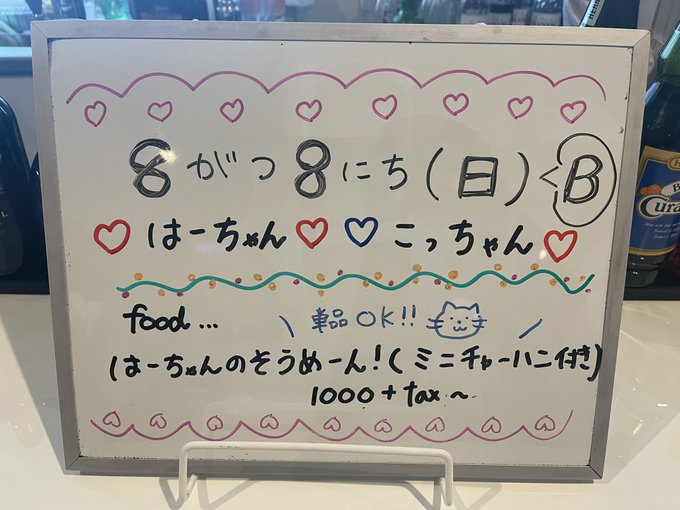 8がつ8にち(日) B
はーちゃん こっちゃん
food... 単品OK!!
はーちゃんのそうめーん!(ミニチャーハン付き)
1000+tax〜
Cura